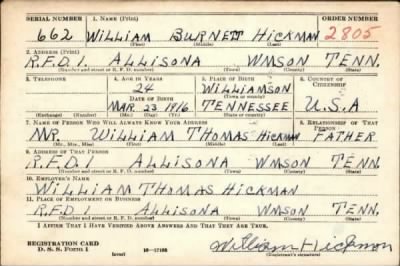 SERIAL NUMBER 1. NAME (Print) ORDER NUMBER
662 WILLIAM BURNETT HICKMAN 2805
(First) (Middle) (Last)
2. ADDRESS (Print)
R.F.D.1. ALLISONA WMSON TENN.
(Number and street or R. F. D. number) (Town) (County) (State)
3. TELEPHONE 4. AGE IN YEARS 5. PLACE OF BIRTH 6. COUNTRY OF CITIZENSHIP
24 WILLIAMSON
DATE OF BIRTH (Town or county)
MAR. 23 1916 TENNESSEE U.S.A
(Exchange) (No.) (Mo.) (Day) (Yr.) (State or country)
7. NAME OF PERSON WHO WILL ALWAYS KNOW YOUR ADDRESS 8. RELATIONSHIP OF THAT PERSON
MR. WILLIAM THOMAS HICKMAN FATHER
(Mr., Mrs., Miss) (First) (Middle) (Last)
9. ADDRESS OF THAT PERSON
R.F.D.1 ALLISONA WMSON TENN.
(Number and street or R. F. D. number) (Town) (County) (State)
10. EMPLOYER'S NAME
WILLIAM THOMAS HICKMAN
11. PLACE OF EMPLOYMENT OR BUSINESS
R.F.D.1 ALLISONA WMSON TENN.
(Number and street or R. F. D. number) (Town) (County) (State)
I AFFIRM THAT I HAVE VERIFIED ABOVE ANSWERS AND THAT THEY ARE TRUE.
REGISTRATION CARD
D. S. S. Form 1 (over) 16-17105 William Hickman